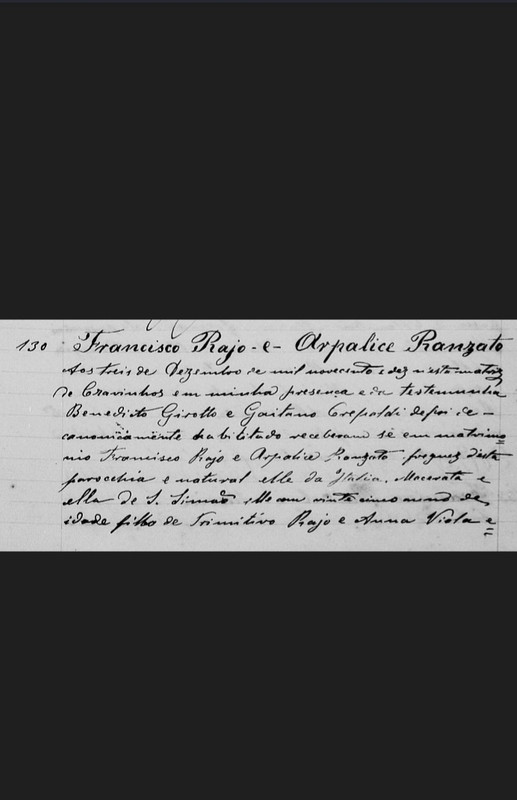 130 Francisco Rajo - e - Arpalice Ranzato
Aos treis de Dezembro de mil novecento e dez n'esta matriz
de Cravinhos em minha presença e da testemunha
Benedicto Girotto e Gaitano Crepaldi depoi de -
canonicamente habilitado receberam se em matrimo=
nio Francisco Rajo e Arpalice Ranzato freguez desta
parochia e natural elle da Italia, Macerata e
ella de S. Simão elle com vinte cinco anno de
idade filho de Primitivo Rajo e Anna Viola e=